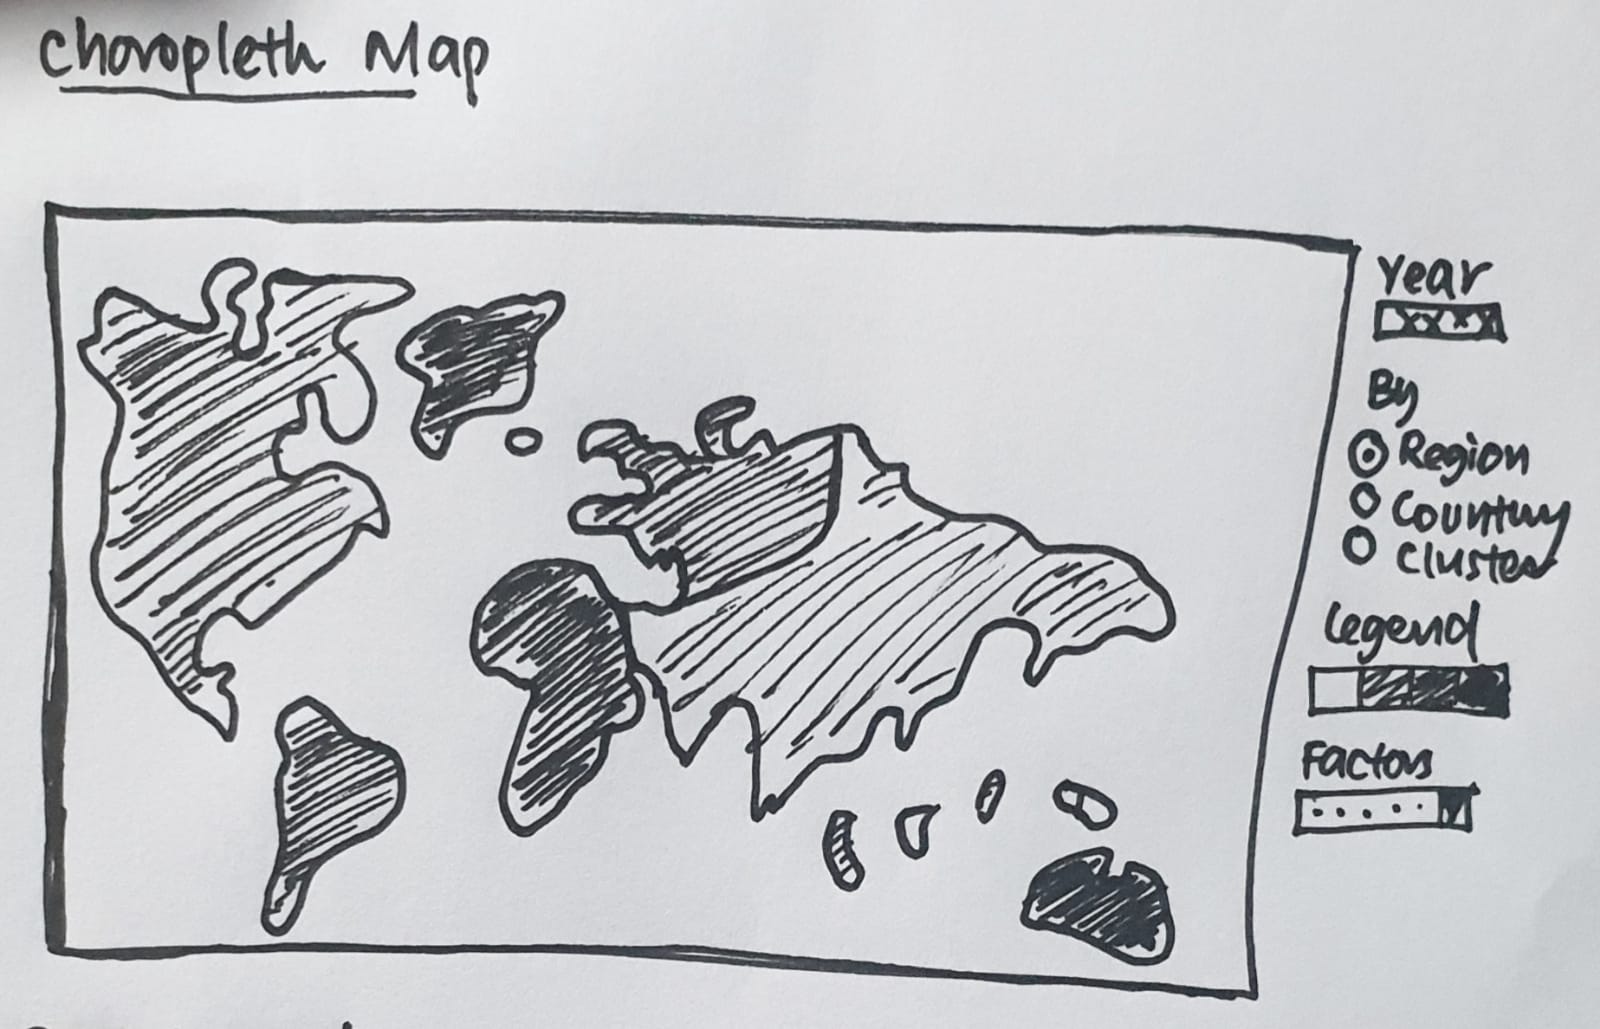 Choropleth Map
Year
xxxx
By
Region
Country
Cluster
Legend
Factors